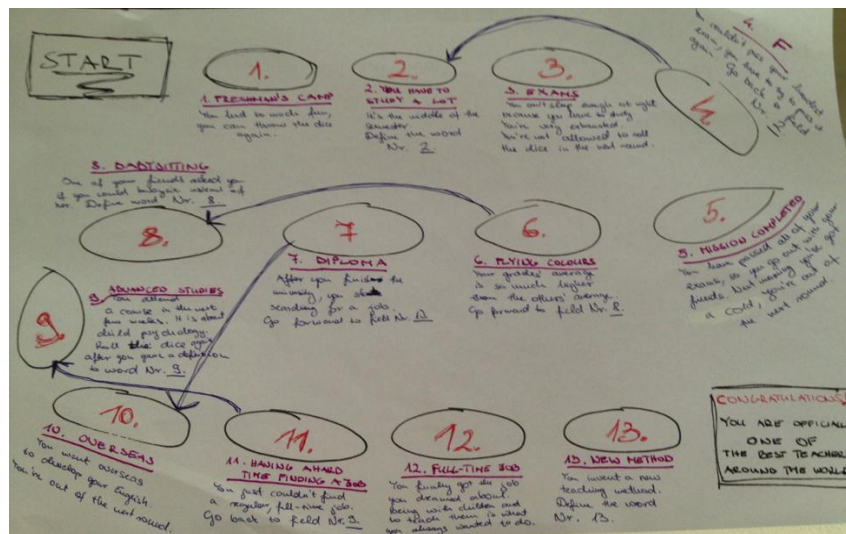 START
1.
1. FRESHMAN'S CAMP
You had so much fun,
you can throw the dice
again.
2.
2. YOU HAVE TO
STUDY A LOT
It's the middle of the
semester.
Define the word
Nr. 2
3.
3. EXAMS
You can't sleep enough at night
because you have to study
You're very exhausted
You're not allowed to roll
the dice in the next round.
4.
4. F
You couldn't pass your hardest
exam, you have to try to pass it
again. Go back to field
Nr. 2
5.
5. MISSION COMPLETED
You have passed all of your
exams, so you go out with your
friends. Next morning you've got
a cold, you're out of
the next round.
6.
6. FLYING COLOURS
Your grades' average
is so much higher
than the others' average.
Go forward to field Nr. 8.
7
7. DIPLOMA
After you finish the
university, you
searching for a job.
Go forward to field Nr.
8.
8. BABYSITTING
One of your friends asked you
if you could babysit instead of
her. Define word Nr. 8.
9.
9. ADVANCED STUDIES
You attend
a course in the next
few weeks. It is about
child psychology.
Roll the dice again
after you gave a definition
to word Nr. 9.
10.
10. OVERSEAS
You went overseas
to develop your English.
You're out of the next round.
11.
11. HAVING A HARD
TIME FINDING A JOB
You just couldn't find
a regular, full-time job.
Go back to field Nr. 9.
12.
12. FULL-TIME JOB
You finally got the job
you dreamed about.
Being with children and
to teach them is what
you always wanted to do.
13.
13. NEW METHOD
You invent a new
teaching method.
Define the word
Nr. 13.
CONGRATULATIONS!
YOU ARE OFFICIAL
ONE OF
THE BEST TEACHER
AROUND THE WORLD